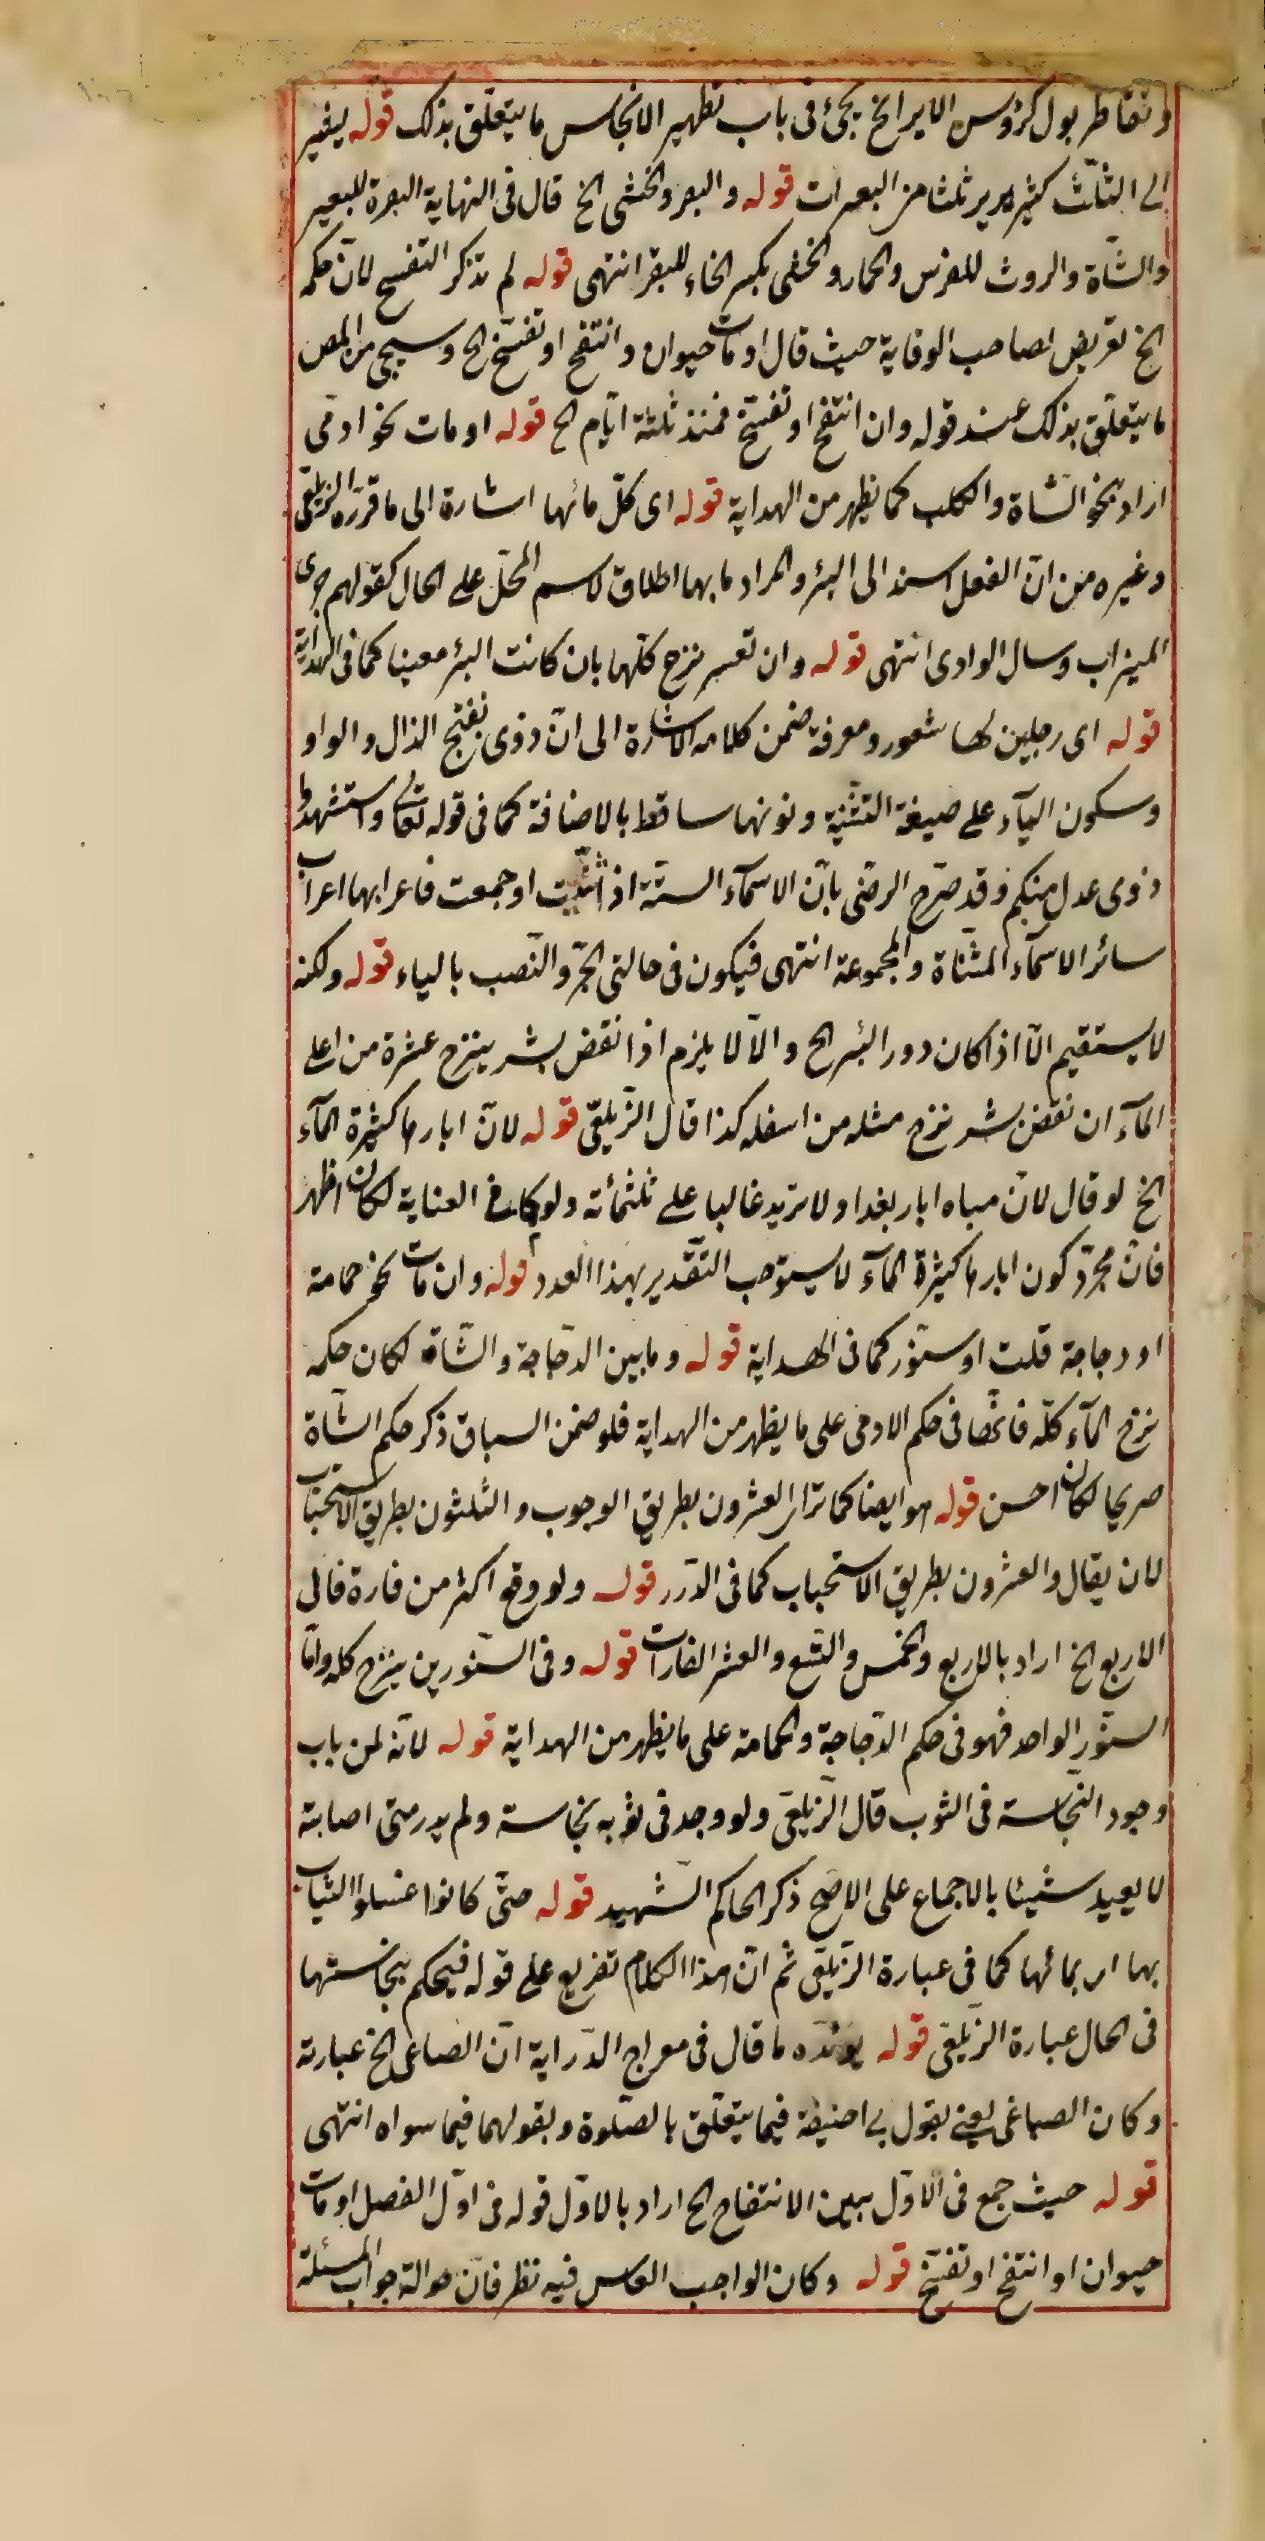 وتقاطر بول كرؤس الابر الخ يجئ فى باب تطهير الانجاس ما يتعلق بذلك قوله يشير
الى الثلث كثير يريد ثلثا من البعرات قوله والبعر والخثى الخ قال فى النهاية البعرة للبعير
والشاة والروث للفرس والحمار والخثى بكسر الخاء للبقر انتهى قوله لم تذكر التفسخ لان حكمه
الخ تعريض لصاحب الوقاية حيث قال او مات حيوان وانتفخ او تفسخ الخ وسيجى من المص
ما يتعلق بذلك عند قوله وان انتفخ او تفسخ فمنذ ثلثة ايام الخ قوله او مات نحو ادمى
اراد بنحو الشاة والكلب كما يظهر من الهداية قوله اى كل مائها اشارة الى ما قرره الزيلعى
وغيره من ان الفعل اسند الى البئر والمراد ما بها اطلاق لاسم المحل على الحال كقولهم جرى
الميزاب وسال الوادى انتهى قوله وان تعسر نزح كلها بان كانت البئر معينا كما فى الهداية
قوله اى رجلين لهما شعور ومعرفة ضمن كلامه الاشارة الى ان ذوى بفتح الذال والواو
وسكون الياء على صيغة التثنية ونونها ساقط بالاضافة كما فى قوله تعالى واستشهدوا
ذوى عدل منكم وقد صرح الرضى بان الاسماء الستة اذا ثنيت او جمعت فاعرابها اعراب
سائر الاسماء المثناة والمجموعة انتهى فيكون فى حالتى الجر والنصب بالياء قوله ولكنه
لا يستقيم الا اذا كان دور البئر الخ والا لا يلزم اذا نقض بشبر بنزح عشرة من اعلى
الماء ان نقض بشبر نزح مثله من اسفله كذا قال الزيلعى قوله لان ابارها كثيرة الماء
الخ لو قال لان مياه ابار بغداد لا تزيد غالبا على ثلثمائة ولو كما فى العناية لكان اظهر
فان مجرد كون ابارها كثيرة الماء لا يستوجب التقدير بهذا العدد قوله وان مات نحو حمامة
او دجاجة قلت او سنور كما فى الهداية قوله وما بين الدجاجة والشاة لكان حكمه
نزح الماء كله فانها فى حكم الادمى على ما يظهر من الهداية فلو ضمن السباق ذكر حكم الشاة
صريحا لكان احسن قوله هو ايضا كما ترى العشرون بطريق الوجوب والثلثون بطريق الاستحباب
لان يقال والعشرون بطريق الاستحباب كما فى الدرر قوله ولو وقع اكثر من فارة فالى
الاربع الخ اراد بالاربع والخمس والتسع والعشر الفارات قوله وفى السنورين ينزح كله واما
السنور الواحد فهو فى حكم الدجاجة والحمامة على ما يظهر من الهداية قوله لانه من باب
وجود النجاسة فى الثوب قال الزيلعى ولو وجد فى ثوبه نجاسة ولم يدر متى اصابته
لا يعيد شيئا بالاجماع على الاصح ذكر الحاكم الشهيد قوله حتى كانوا غسلوا الثياب
بها اى بمائها كما فى عبارة الزيلعى ثم ان هذا الكلام تفريع على قوله فيحكم بنجاستها
فى الحال عبارة الزيلعى قوله يؤيده ما قال فى معراج الدراية ان الصباغى الخ عبارته
وكان الصباغى يفتى بقول ابى حنيفة فيما يتعلق بالصلوة وبقولهما فيما سواه انتهى
قوله حيث جمع فى الاول بين الانتفاخ الخ اراد بالاول قوله فى اول الفصل او مات
حيوان او انتفخ او تفسخ قوله وكان الواجب العكس فيه نظر فان حوالة جواب المسئلة